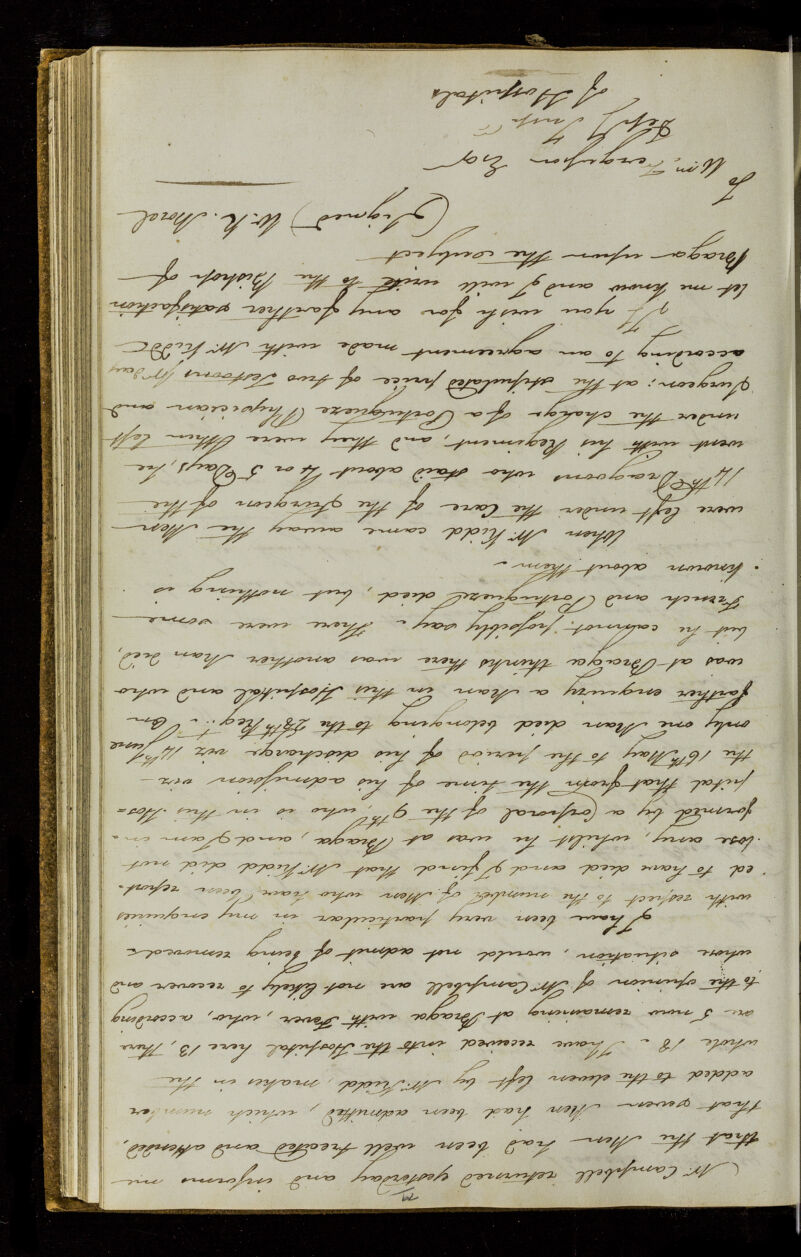 Mr. Campbell returned yesterday and informs me
that the Men had been well treated and attended,
that seven Men had been admitted, which number
added to the eleven left by Mr. Kidd, makes in the
whole 18. I have received into the Hospital here 13, there
are 5 now remaining at Braga with Fever, who, according
to the opinion of Mr. Campbell are not likely to recover and
whose situation, would not admit of being removed.
I have been very particular in my enquiries
with respect to the number of Men who have been report-
ed to have died and I find that Mr. Kidd did not
lose any, whilst he was at Braga, and I am in-
formed by a Corporal of the 9th, who is in this Hos-
pital that from the time of his admission viz
the 16th May to the period of his discharge viz 14th June
only one Man died belonging to the 28th Regt. On
farther enquiry a Man in this Hospital and who
was at Braga thinks there was another Man died,
but he cannot possibly say. There were some
French and Portugueze died, but nothing is
known about them.
When Mr. Kidd came away the Men
were left under the Care of the Surgeon of the
14th Dragoons who staid about 4 or 5 Days, he
went with his Regiment, and they were then left
under the charge of a Portugueze Physician and
Surgeon; at the stipulated price of two Testoons pr day
according to an agreement made with Mr. Kidd
If you wish for any farther satisfaction
let me know and I will write to the Bishop of
Braga upon the subject
(Signed) W. R. Morel
To
Wm. Fergusson Esqr
Depy Inspr
of Hospitals